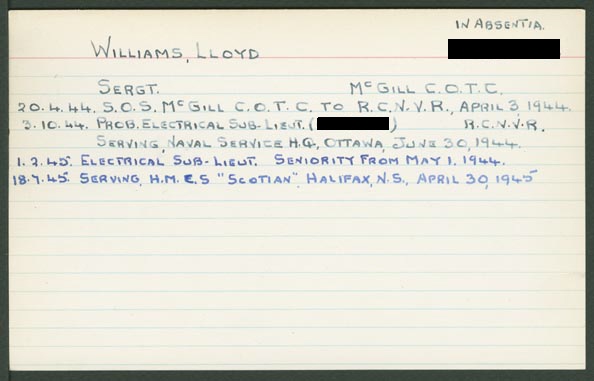 IN ABSENTIA.
WILLIAMS, LLOYD
SERGT. McGILL C.O.T.C.
20.4.44. S.O.S. McGILL C.O.T.C. TO R.C.N.V.R., APRIL 3 1944.
3.10.44. PROB. ELECTRICAL SUB-LIEUT. ( ) R.C.N.V.R.
SERVING, NAVAL SERVICE H.Q., OTTAWA, JUNE 30, 1944.
1.2.45. ELECTRICAL SUB-LIEUT. SENIORITY FROM MAY 1. 1944.
18.7.45. SERVING, H.M.C.S "SCOTIAN", HALIFAX, N.S., APRIL 30, 1945